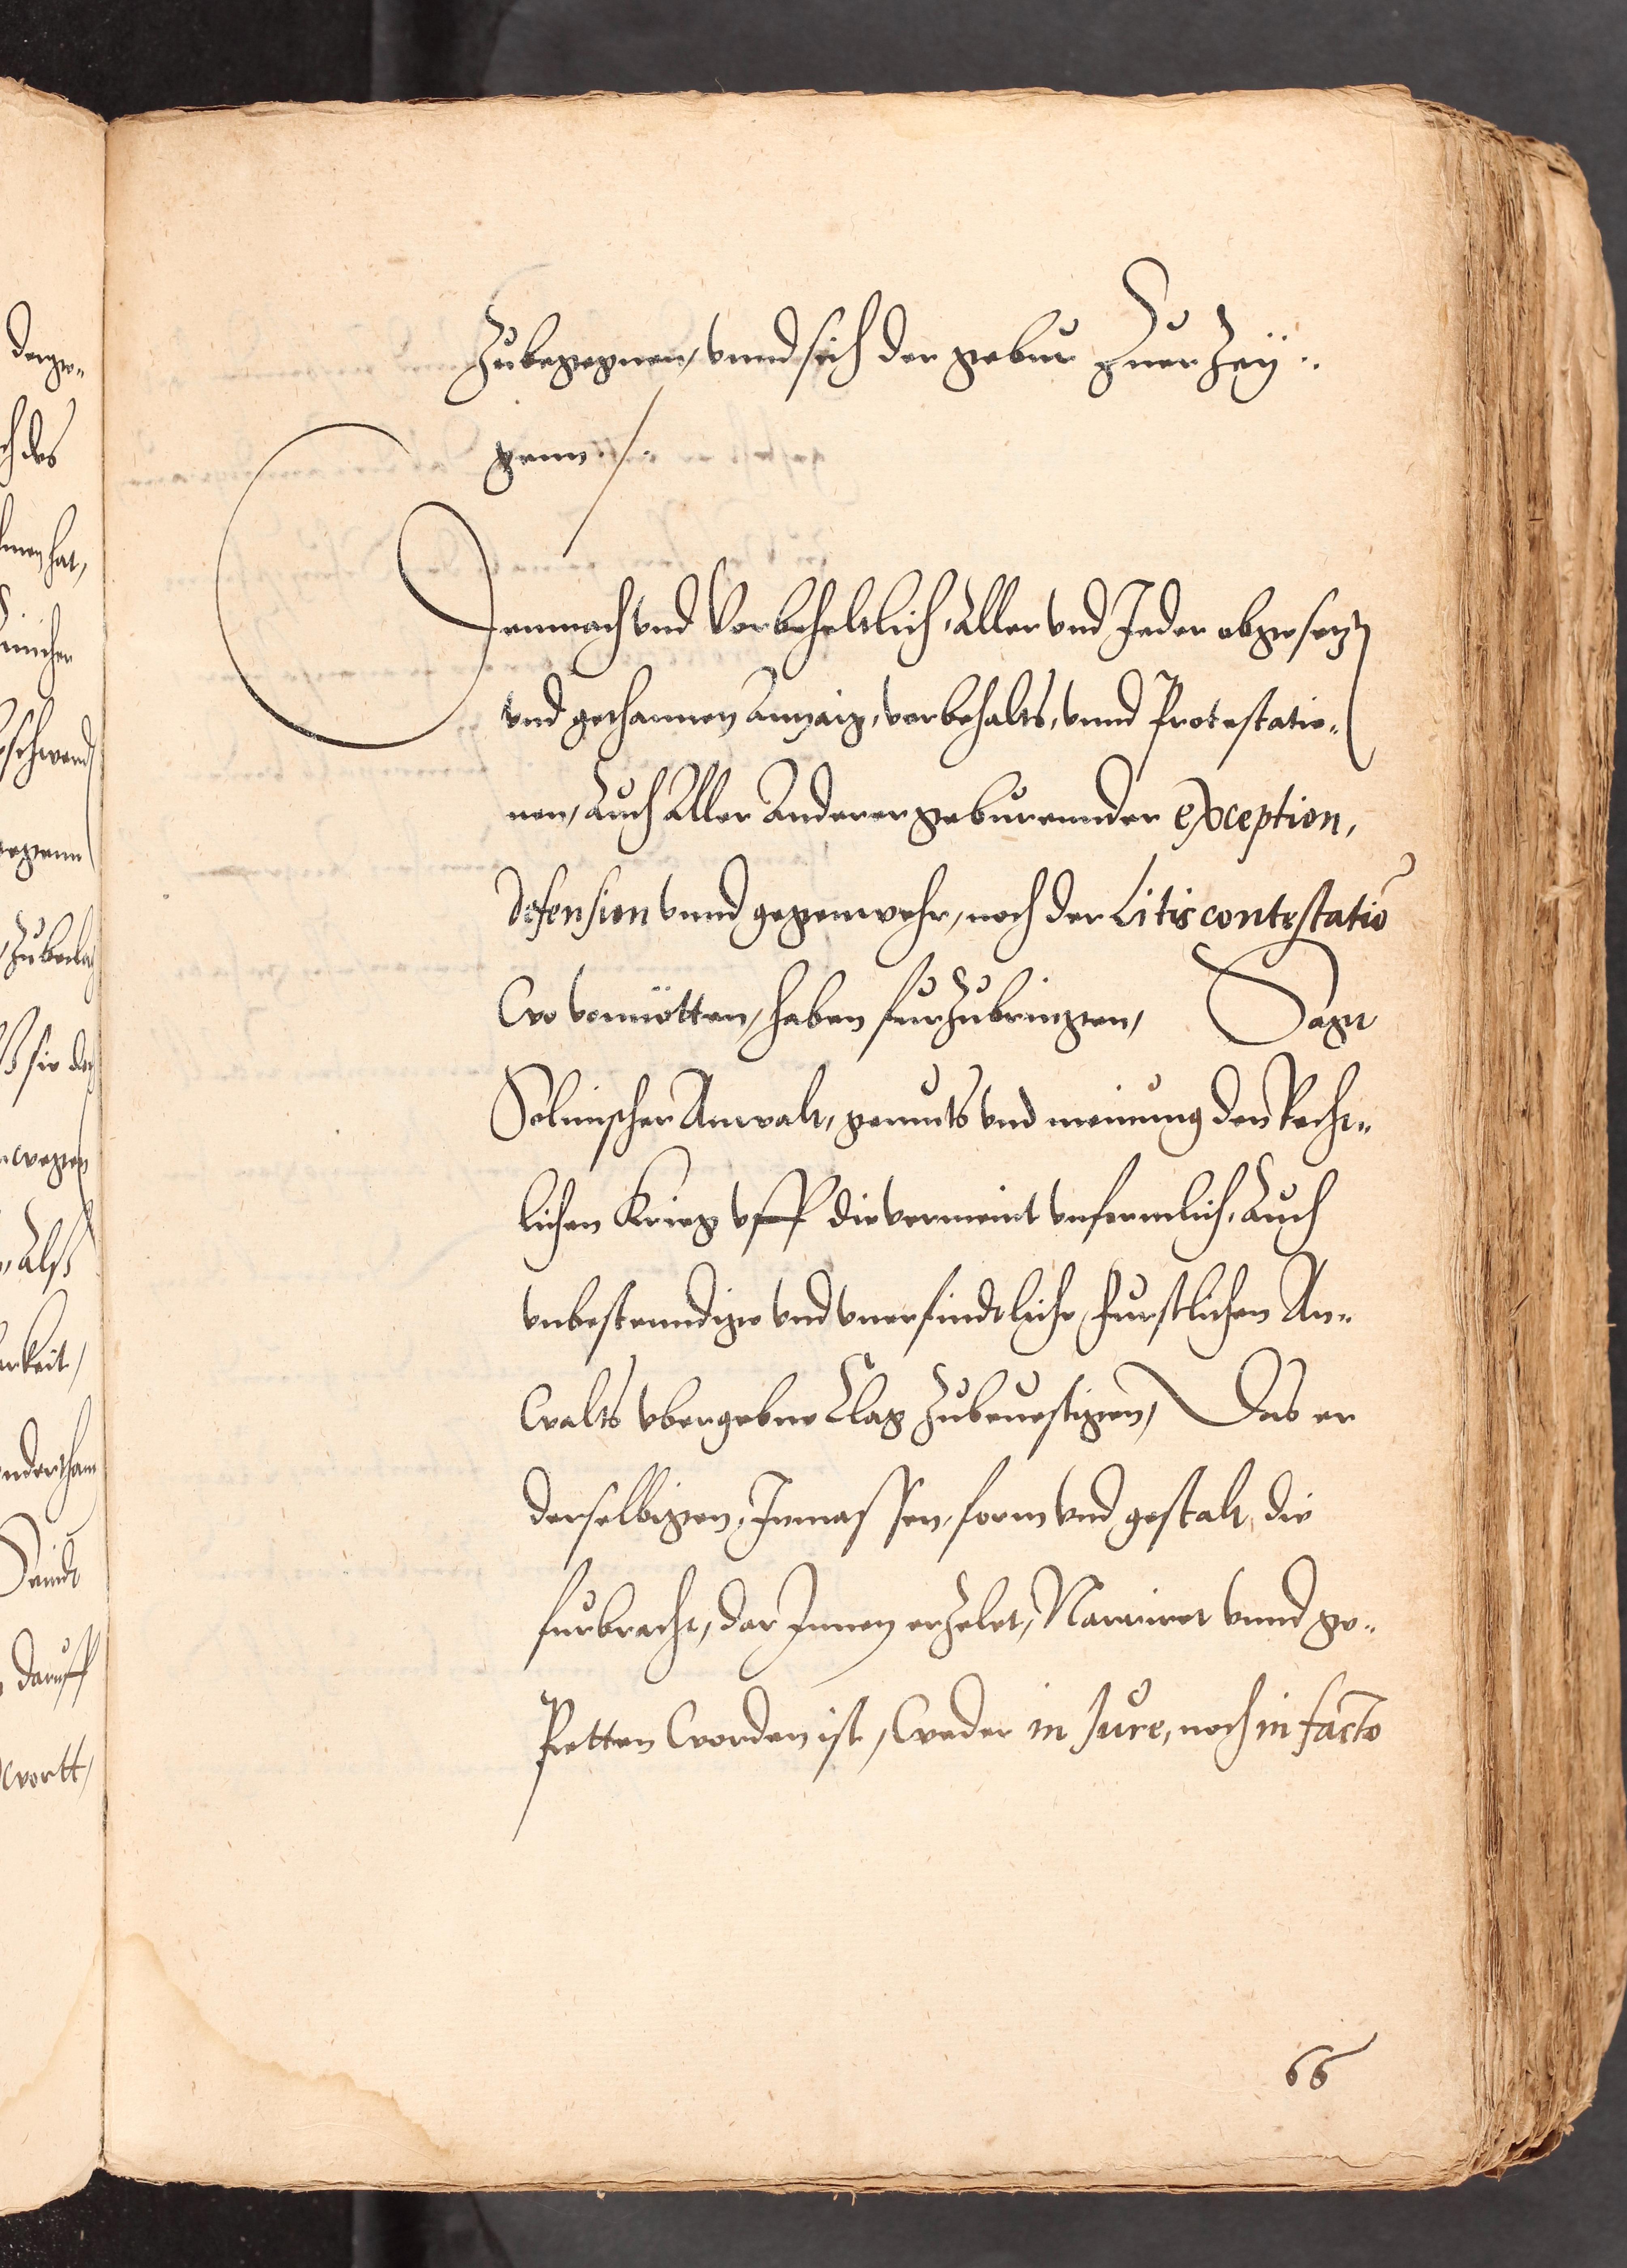 derge-
ch des
hat,
zubegegnen, vnnd sich der gebur zuerzey-
genn ./.
Demnach vnd Vorbeheltlich, Aller vnd Jeder obgesetztt
vnd gethannen Anzaig, vorbehalts, vnnd Protestatio-
nen, Auch Aller Anderer geburennder exception,
defension vnnd gegenwehr, noch der Litis contestatio
Wo vonnötten, haben furzubringen, Sagt
Solmischer Anwalt, gemuts vnd meinung den Recht-
lichen Krieg vff die vermeint vnformlich, Auch
vnbestenndige vnd vnerfindtliche, furstlichen An-
walts vbergebne Clag zubeuestigen, Das er
derselbigen, Inmassen, form vnd gestalt, die
furbracht, dar Innen erzelet, Narriret vnnd ge-
Petten Worden ist, Weder in Jure, noch in facto
66
Alß
daruff
wortt,